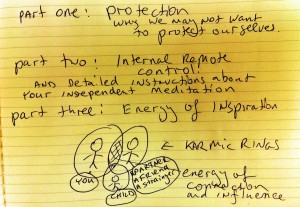 part one: protection
why we may not want
to protect ourselves.
part two: Internal Remote
control:
AND Detailed Instructions about
Your Independent Meditation
part three: Energy of Inspiration
KARMIC RINGS
YOU
PARTNER
A FRIEND
A STRANGER
CHILD
energy of
connection
and influence